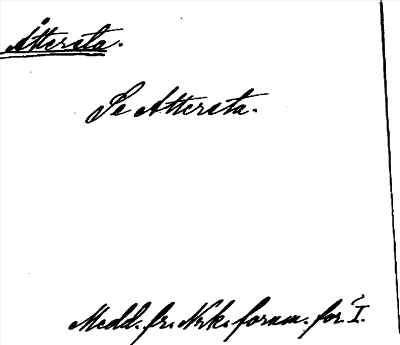 Åttersta.
Se Attersta.
Medd. fr. Nrk. fornm. för. I.